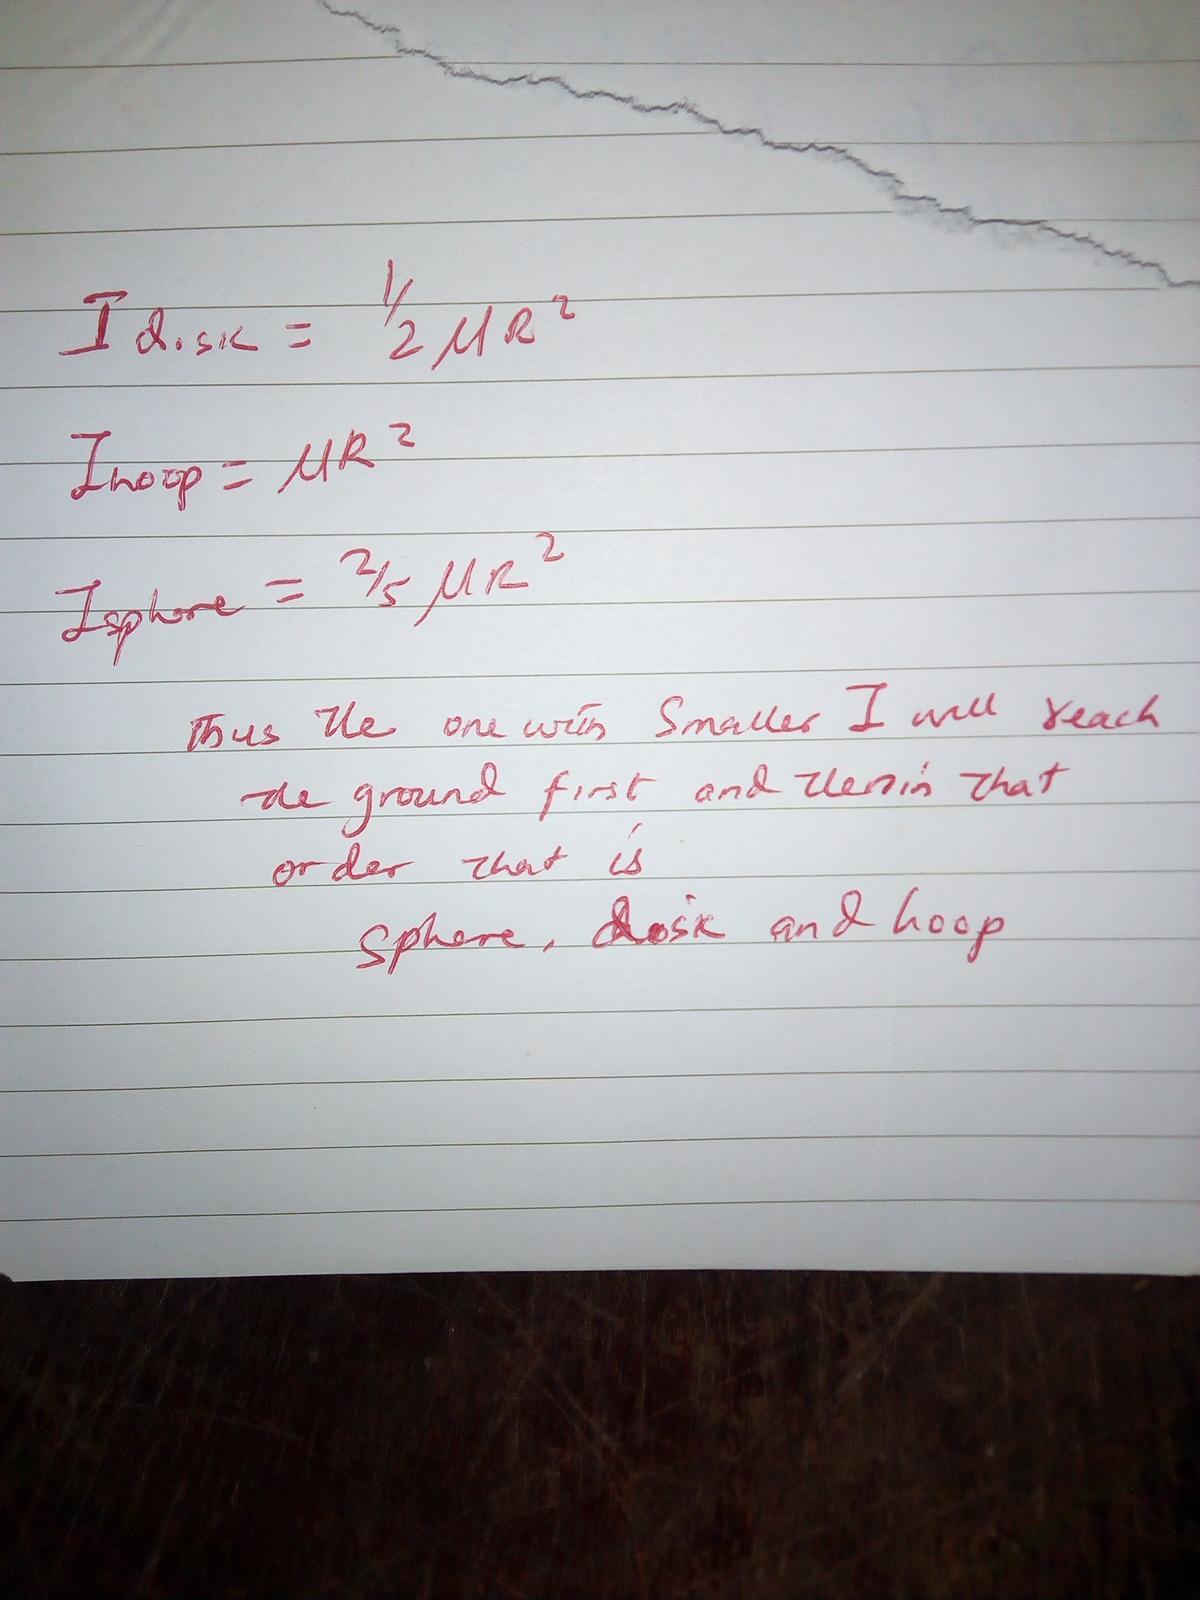 I disk = 1/2 MR²
I hoop = MR²
I sphere = 2/5 MR²
Thus the one with smaller I will reach
the ground first and then in that
order that is
sphere, disk and hoop